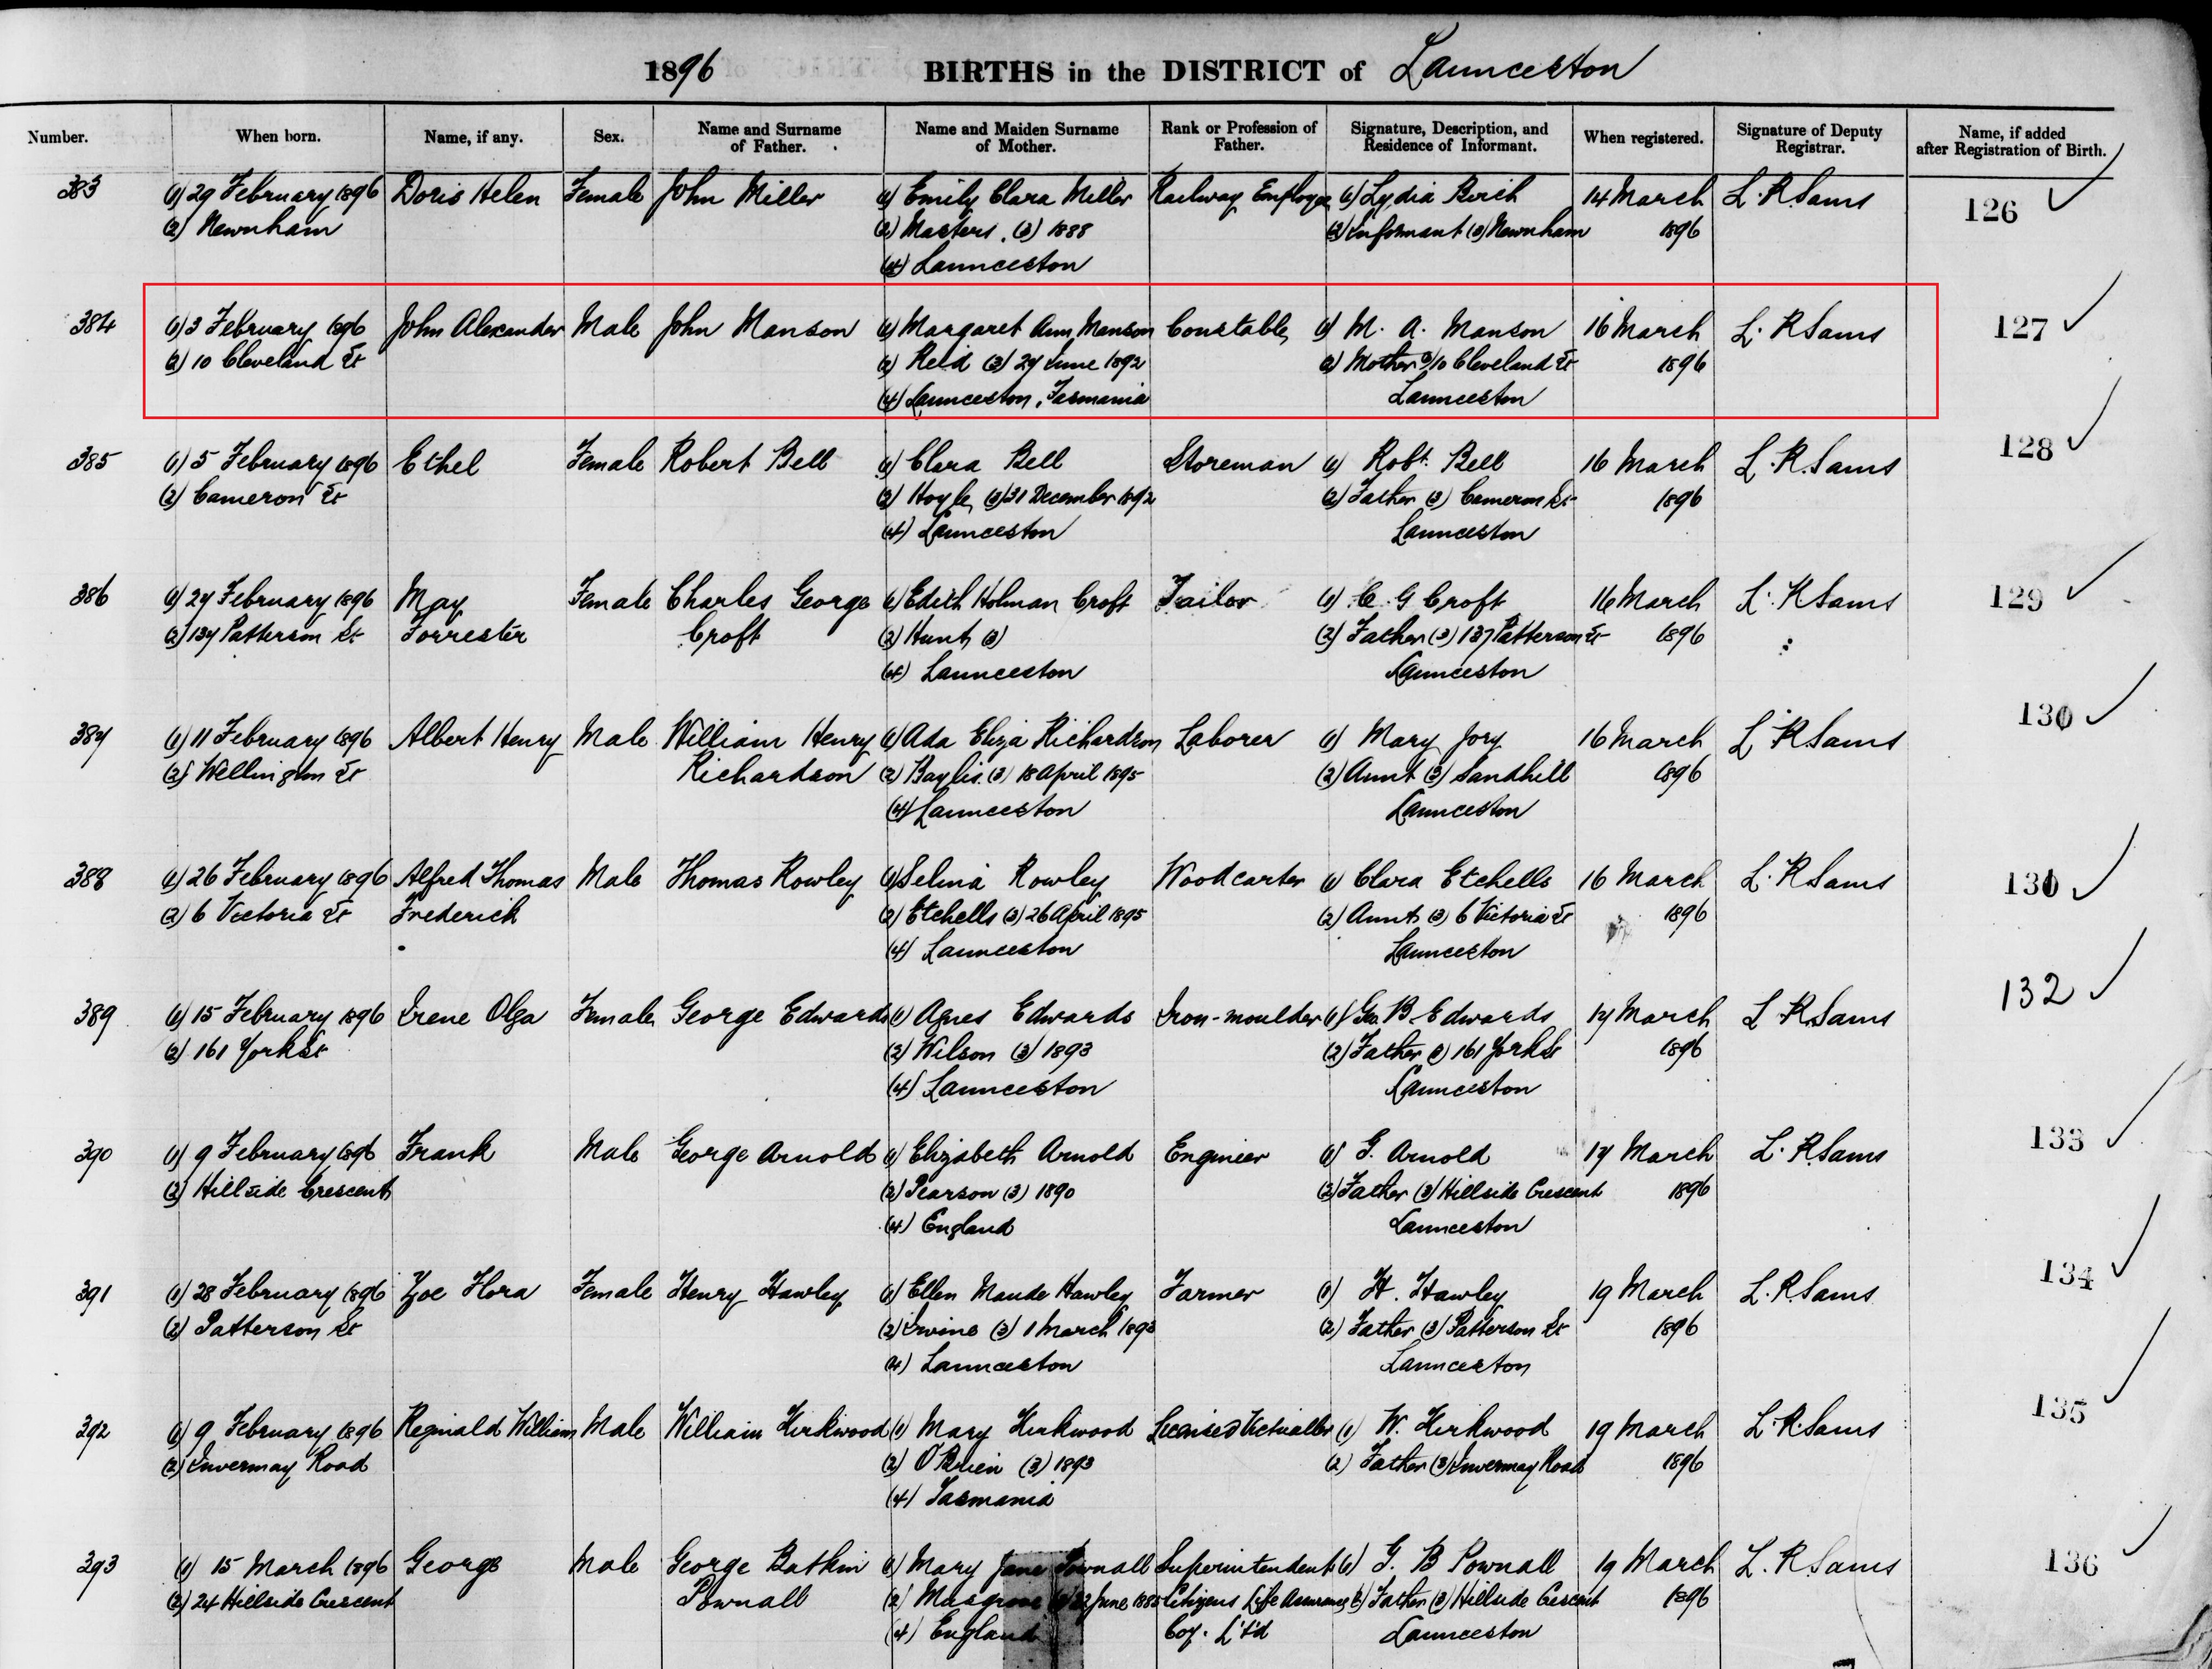 1896 BIRTHS in the DISTRICT of Launceston
Number. When born. Name, if any. Sex. Name and Surname of Father. Name and Maiden Surname of Mother. Rank or Profession of Father. Signature, Description, and Residence of Informant. When registered. Signature of Deputy Registrar. Name, if added after Registration of Birth.
383 (1) 29 February 1896 Doris Helen Female John Miller (1) Emily Clara Miller Railway Employee (1) Lydia Birch 14 March L. R Sams 126
(2) Newnham (2) Masters. (3) 1888 (2) Informant (3) Newnham 1896
(4) Launceston
384 (1) 3 February 1896 John Alexander Male John Manson (1) Margaret Ann Manson Constable (1) M. A. Manson 16 March L. R Sams 127
(2) 10 Cleveland St (2) Reid (3) 27 June 1892 (2) Mother (3) 10 Cleveland St 1896
(4) Launceston, Tasmania Launceston
385 (1) 5 February 1896 Ethel Female Robert Bell (1) Clara Bell Storeman (1) Robt. Bell 16 March L. R. Sams 128
(2) Cameron St (2) Hoyle (3) 31 December 1892 (2) Father (3) Cameron St 1896
(4) Launceston Launceston
386 (1) 27 February 1896 May Female Charles George (1) Edith Holman Croft Tailor (1) C. G Croft 16 March L. R Sams 129
(2) 137 Patterson St Forrester Croft (2) Hunt (3) (2) Father (3) 137 Patterson St 1896
(4) Launceston Launceston
387 (1) 11 February 1896 Albert Henry Male William Henry (1) Ada Eliza Richardson Laborer (1) Mary Jory 16 March L. R Sams 130
(2) Wellington St Richardson (2) Baylis. (3) 18 April 1895 (2) Aunt (3) Sandhill 1896
(4) Launceston Launceston
388 (1) 26 February 1896 Alfred Thomas Male Thomas Rowley (1) Selina Rowley Woodcarter (1) Clara Etchells 16 March L. R Sams 131
(2) 6 Victoria St Frederick (2) Etchells (3) 26 April 1895 (2) Aunt (3) 6 Victoria St 1896
(4) Launceston Launceston
389 (1) 15 February 1896 Irene Olga Female George Edwards (1) Agnes Edwards Iron-moulder (1) Geo. B. Edwards 17 March L R Sams 132
(2) 161 York St (2) Wilson (3) 1893 (2) Father (3) 161 York St 1896
(4) Launceston Launceston
390 (1) 9 February 1896 Frank Male George Arnold (1) Elizabeth Arnold Engineer (1) G. Arnold 17 March L. R. Sams 133
(2) Hillside Crescent (2) Pearson (3) 1890 (2) Father (3) Hillside Crescent 1896
(4) England Launceston
391 (1) 28 February 1896 Zoe Flora Female Henry Hawley (1) Ellen Maude Hawley Farmer (1) H. Hawley 19 March L. R. Sams 134
(2) Patterson St (2) Irvine (3) 1 March 1893 (2) Father (3) Patterson St 1896
(4) Launceston Launceston
392 (1) 9 February 1896 Reginald William Male William Kirkwood (1) Mary Kirkwood Licensed Victualler (1) W. Kirkwood 19 March L. R. Sams 135
(2) Invermay Road (2) O'Brien (3) 1893 (2) Father (3) Invermay Road 1896
(4) Tasmania
393 (1) 15 March 1896 George Male George Batkin (1) Mary Jane Pownall Superintendent (1) G. B Pownall 19 March L. R Sams 136
(2) 24 Hillside Crescent Pownall (2) Musgrove (3) 22 June 1885 Citizens Life Assurance (2) Father (3) Hillside Crescent 1896
(4) England Coy. L'td Launceston